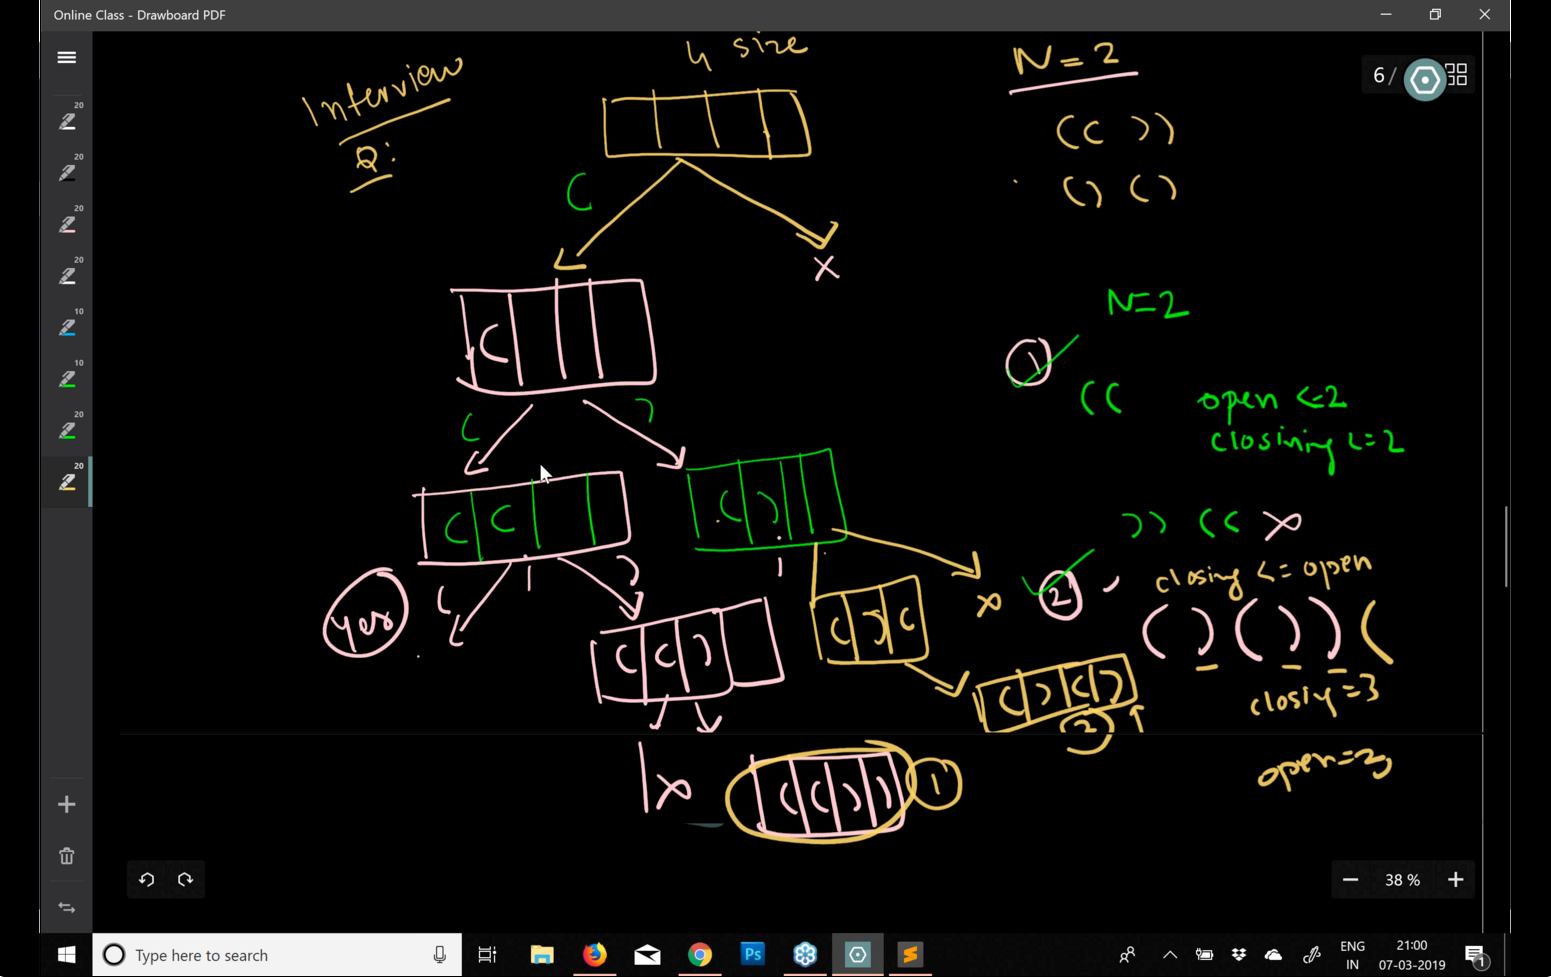 Online Class - Drawboard PDF
20
20
20
20
10
10
20
20
6 /
Interview
Q:
4 size
N = 2
(( ))
() ()
(
x
(
( )
N=2
1
(( open <=2
closining <=2
( (
( )
)) (( x
closing <= open
2
( ) ( ) ) (
closiy = 3
open=3
yes
( )
( ( )
( ) (
x
( ) ( )
2
x
( ( ) )
1
38 %
Type here to search
Ps
ENG
IN
21:00
07-03-2019
1